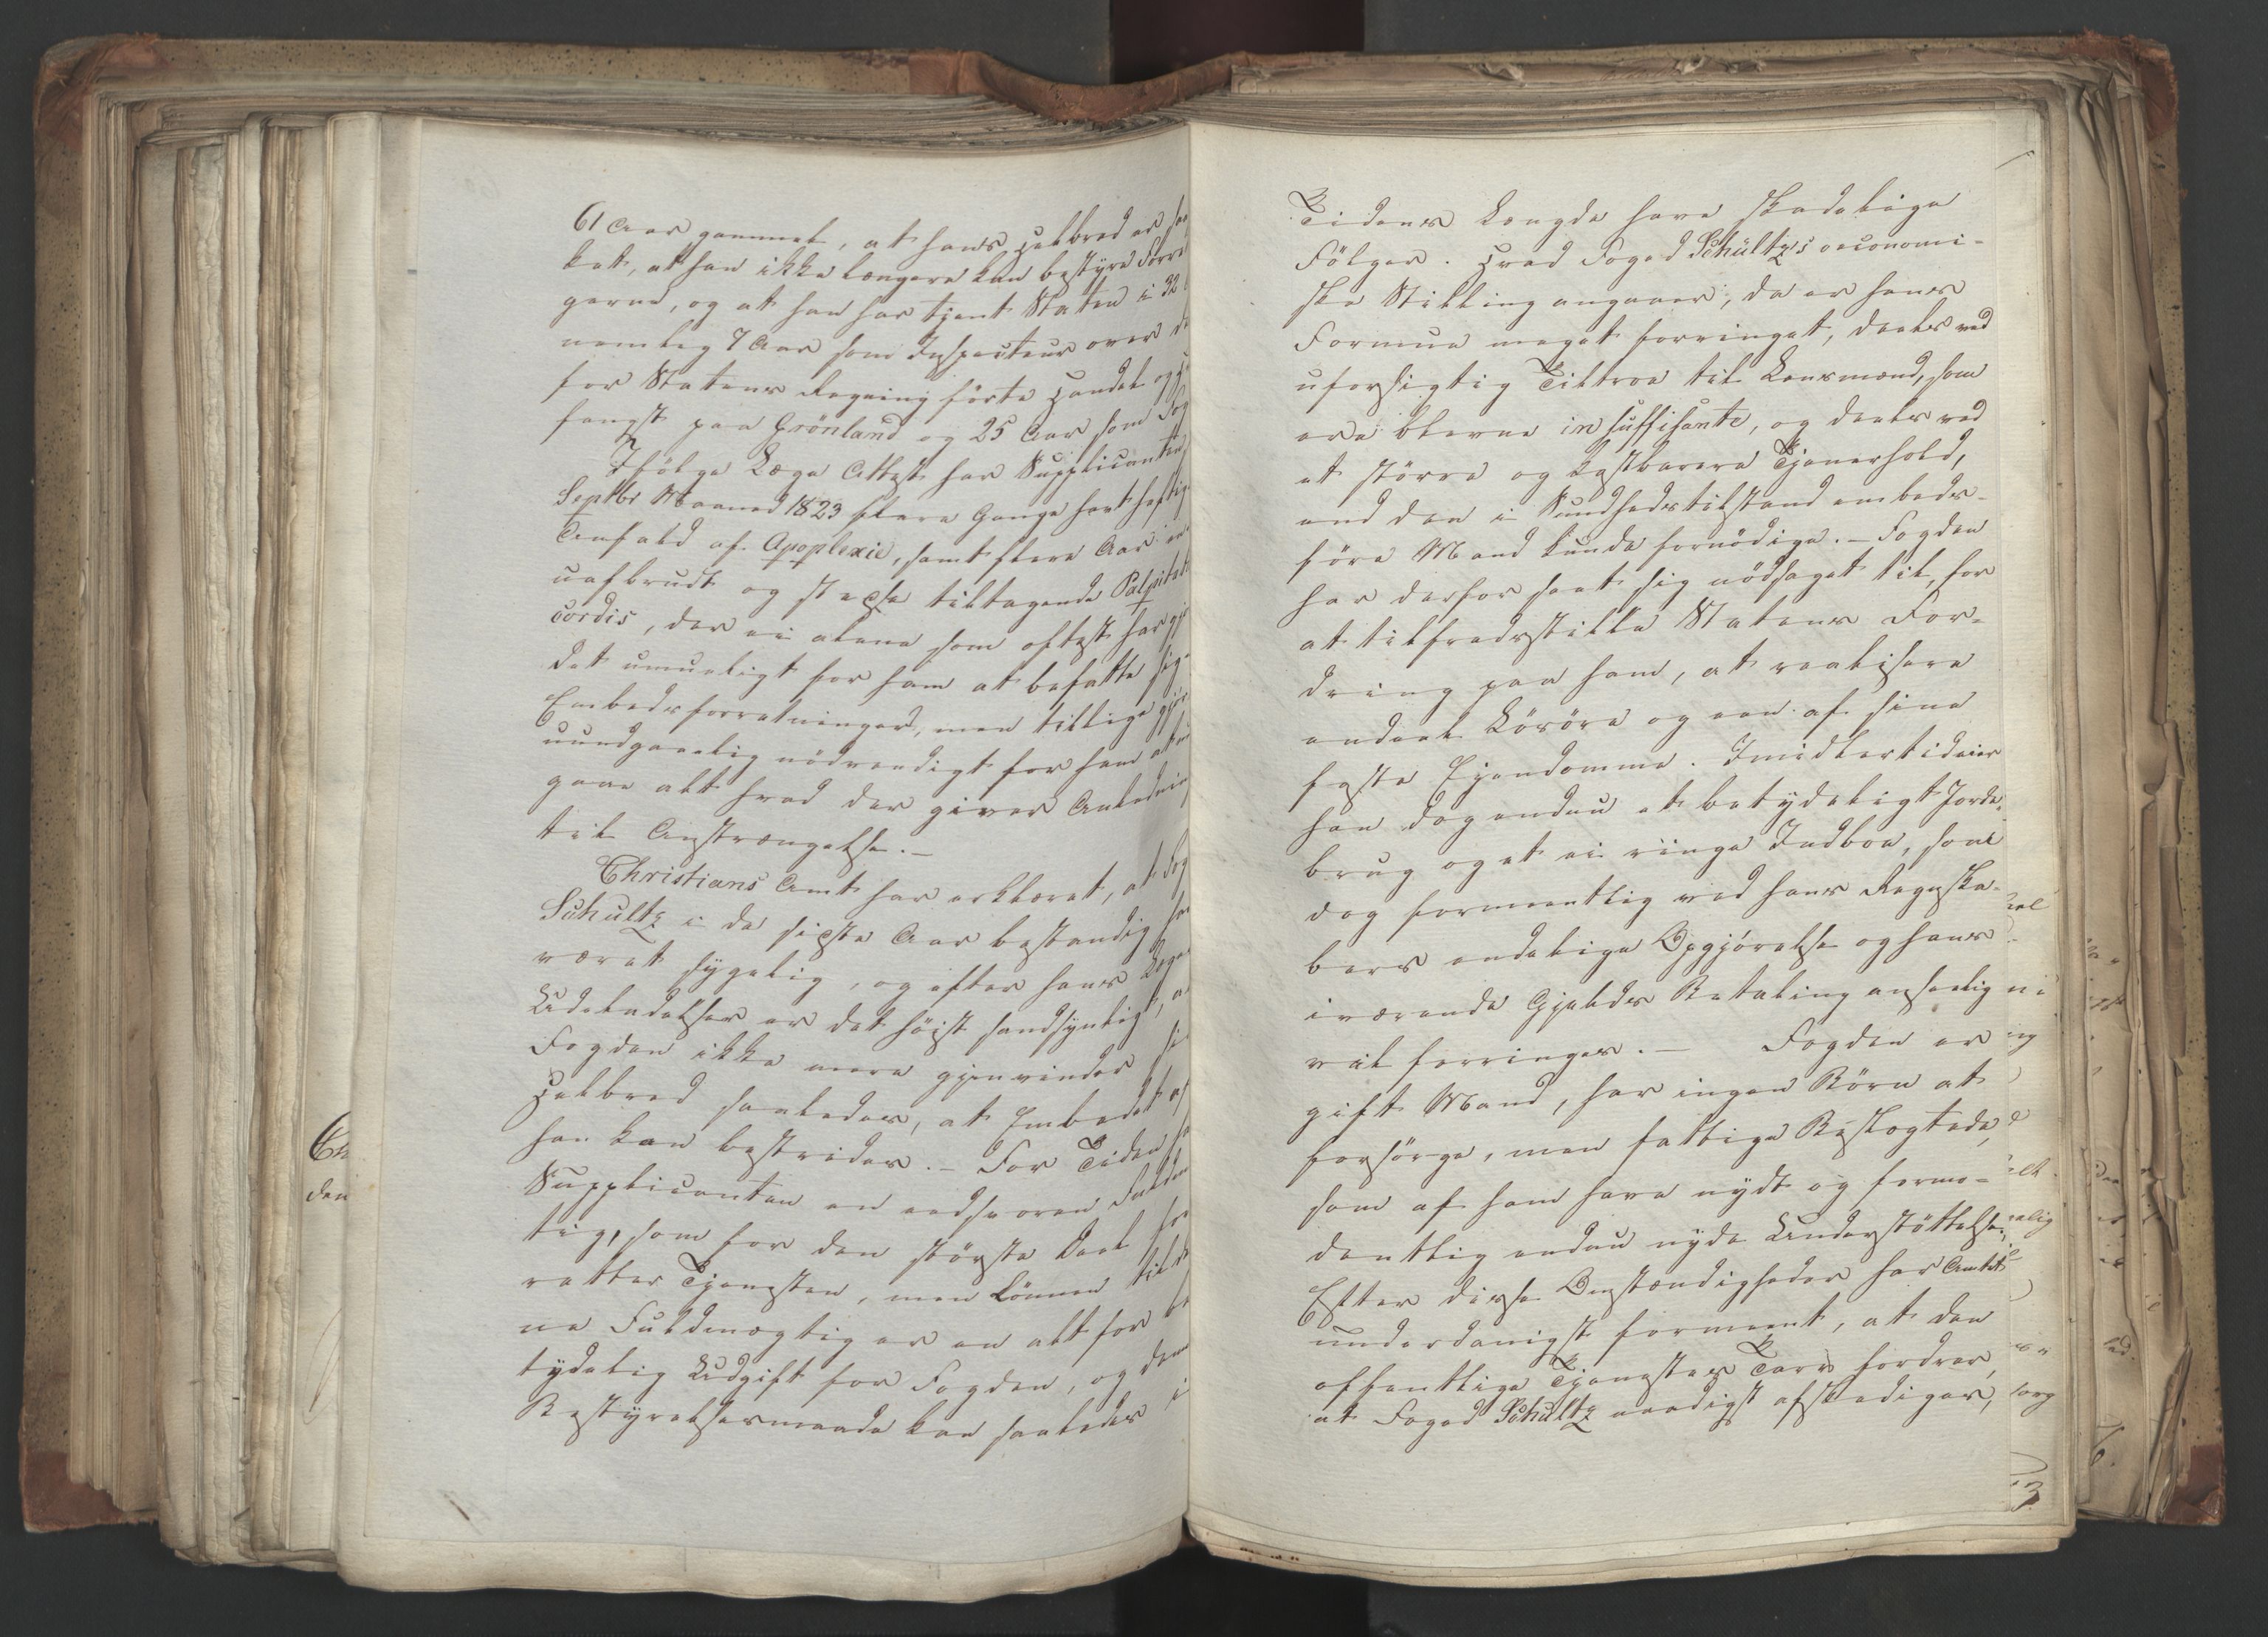 61 Aar gammel, at hans Helbred er saa
ket, at han ikke længere kan bestyre Forret
gerne, og at han har tjent Staten i 32
nemlig 7 Aar som Inspecteur over d
for Statens Regning førte Handel og
fangst paa Grönland og 25 Aar som Fog
Ifølge Læge Attest har Supplicanten
Septbr Maaned 1823 flere Gange havt heftig
Anfald af Apoplexie, samt flere Aar
uafbrudt og stedse tiltagende Palpitati
cordis, der ei alene som oftest har gjo
det umueligt for ham at befatte sig
Embedsforretninger, men tillige gjør
uundgaaelig nødvendigt for ham at
gaae alt hvad der giver Anledning
til Anstrængelse. —
Christians Amt har erklæret, at Fog
Schultz i de sidste Aar bestandig ha
været sygelig, og efter hans Læges
Udeladelser er det høist sandsynligt, a
Fogden ikke mere gjenvinder si
Helbred saaledes, at Embedet af
han kan bestrides. — For Tiden ha
Supplicanten en eedsvoren Fuldm
tig, som for den største Deel for
retter Tjenesten, men Lønnen til de
ne Fuldmægtig er en alt for be
tydelig Udgift for Fogden, og den
Bestyrelsesmaade kan saaledes i
Tidens Længde have skadelige
Følger. Hvad Foged Schültz's oeconomi-
ske Stilling angaaer, da er hans
Formue meget forringet, deels ved
uforsigtig Tiltroe til Lensmænd, som
ere blevne insuffisante, og deels ved
et større og kostbarere Tjenerhold,
end den i Sundhedstilstand embeds-
føre Mand kunde fornødige. — Fogden
har derfor seet sig nødsaget til, for
at tilfredsstille Statens For-
dring paa ham, at realisere
endeel Løsøre og een af sine
faste Ejendomme. Imidlertid eier
han dog endnu et betydeligt Jorde-
brug og et ei ringe Indboe, som
dog formeentlig ved hans Regnska-
bers endelige Opgjørelse og hans
iværende Gjelds Betaling anseelig
vil forringes. — Fogden er
gift Mand, har ingen Børn at
forsørge, men fattige Beslægtede,
som af ham have nydt og formo-
dentlig endnu nyde Understøttelse.
Efter disse Omstændigheder har Amtet
underdanigst formeent, at den
offentlige Tjenestes Tarv fordrer,
at Foged Schultz naadigst afskediges,
Ch
den